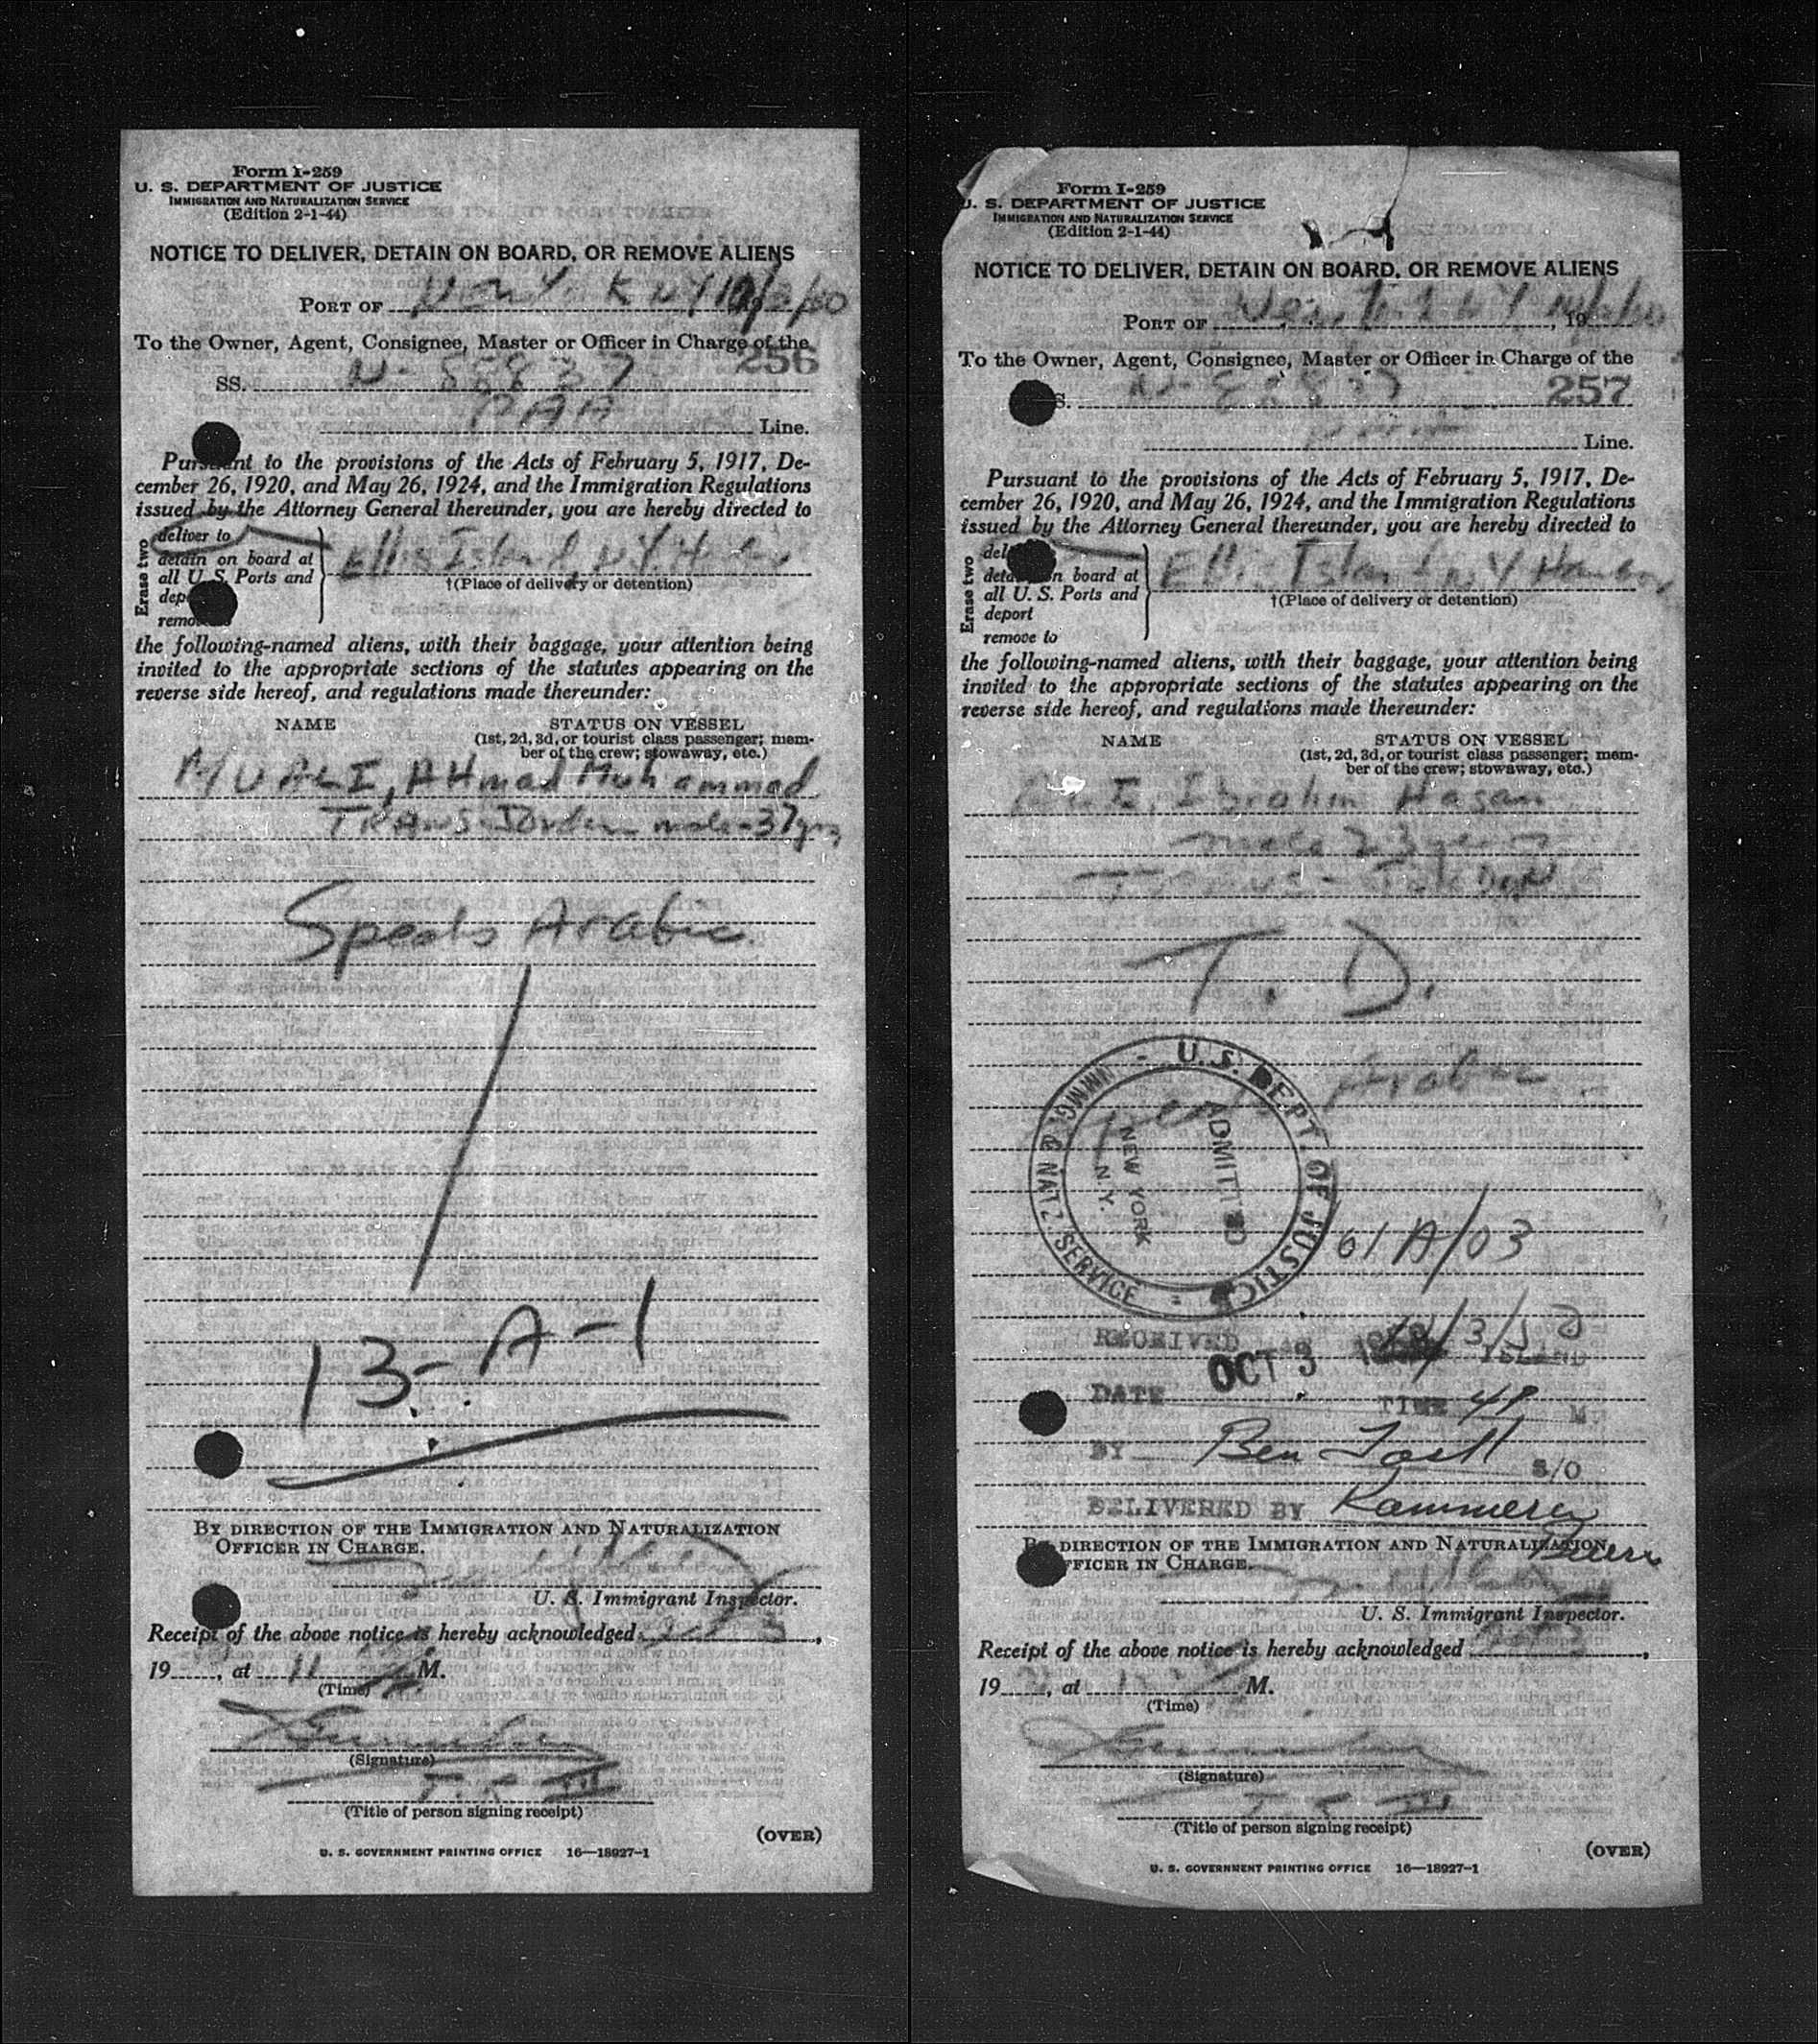 Form I-259
U. S. DEPARTMENT OF JUSTICE
IMMIGRATION AND NATURALIZATION SERVICE
(Edition 2-1-44)
NOTICE TO DELIVER, DETAIN ON BOARD, OR REMOVE ALIENS
PORT OF
To the Owner, Agent, Consignee, Master or Officer in Charge of the
256
SS. N-88837
PAA Line.
Pursuant to the provisions of the Acts of February 5, 1917, De-
cember 26, 1920, and May 26, 1924, and the Immigration Regulations
issued by the Attorney General thereunder, you are hereby directed to
Erase two
deliver to
detain on board at
all U. S. Ports and
remove
Ellis Island, N.Y. Harbor
†(Place of delivery or detention)
the following-named aliens, with their baggage, your attention being
invited to the appropriate sections of the statutes appearing on the
reverse side hereof, and regulations made thereunder:
NAME STATUS ON VESSEL
(1st, 2d, 3d, or tourist class passenger; mem-
ber of the crew; stowaway, etc.)
MUALI, AHmad Muhammad
TRANS-Jordan male-37yrs
Speaks Arabic.
13-A-1
BY DIRECTION OF THE IMMIGRATION AND NATURALIZATION
OFFICER IN CHARGE.
U. S. Immigrant Inspector.
Receipt of the above notice is hereby acknowledged
19 , at 11 M.
(Time)
(Signature)
(Title of person signing receipt)
(OVER)
U. S. GOVERNMENT PRINTING OFFICE 16—18927-1
Form I-259
U. S. DEPARTMENT OF JUSTICE
IMMIGRATION AND NATURALIZATION SERVICE
(Edition 2-1-44)
NOTICE TO DELIVER, DETAIN ON BOARD, OR REMOVE ALIENS
PORT OF New , 19
To the Owner, Agent, Consignee, Master or Officer in Charge of the
N-88837 257
Line.
Pursuant to the provisions of the Acts of February 5, 1917, De-
cember 26, 1920, and May 26, 1924, and the Immigration Regulations
issued by the Attorney General thereunder, you are hereby directed to
Erase two
on board at
all U. S. Ports and
deport
remove to
Ellis Island N Y Harbor
†(Place of delivery or detention)
the following-named aliens, with their baggage, your attention being
invited to the appropriate sections of the statutes appearing on the
reverse side hereof, and regulations made thereunder:
NAME STATUS ON VESSEL
(1st, 2d, 3d, or tourist class passenger; mem-
ber of the crew; stowaway, etc.)
Ibrahim Hasan
male 23 years
T. D.
Arabic
U. S. DEPT OF JUSTICE
IMMIG. & NATZ. SERVICE
ADMITTED
NEW YORK
N.Y.
RECEIVED ISLAND
OCT 3
DATE TIME M.
BY Ben S/O
DELIVERED BY
BY DIRECTION OF THE IMMIGRATION AND NATURALIZATION
OFFICER IN CHARGE.
U. S. Immigrant Inspector.
Receipt of the above notice is hereby acknowledged
19 , at M.
(Time)
(Signature)
(Title of person signing receipt)
(OVER)
U. S. GOVERNMENT PRINTING OFFICE 16—18927-1